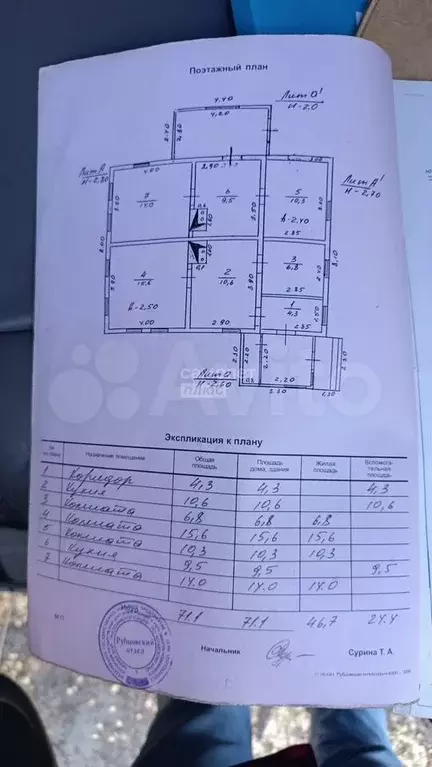 Поэтажный план
4.40
4,20
2.40
2.80
Лит а'
H-2.0
Лит А
H-2,80
Лит А'
H-2,70
4.00
2,90
3.00
7
14.0
6
9,5
5
10,3
h-2.40
2.85
3.50
3
6,8
2.40
2.85
8.10
4
15,6
h-2.50
2
10,6
3.90
1
4,3
1.50
2.85
4.00
2.90
2.30
2.20
2.20
2.30
1.30
Лит а
H-2.60
самолет
плюс
Avito
Экспликация к плану
№ по плану
Назначение помещения
Общая площадь
Площадь дома, здания
Жилая площадь
Вспомога-тельная площадь
1 Коридор 4,3 4,3 4,3
2 Кухня 10,6 10,6 10,6
3 Комната 6,8 6,8 6,8
4 Комната 15,6 15,6 15,6
5 Комната 10,3 10,3 10,3
6 Кухня 9,5 9,5 9,5
7 Комната 14.0 14.0 14.0
71.1 71.1 46,7 24.4
М.П.
Рубцовский
отдел
Начальник
Сурина Т. А.